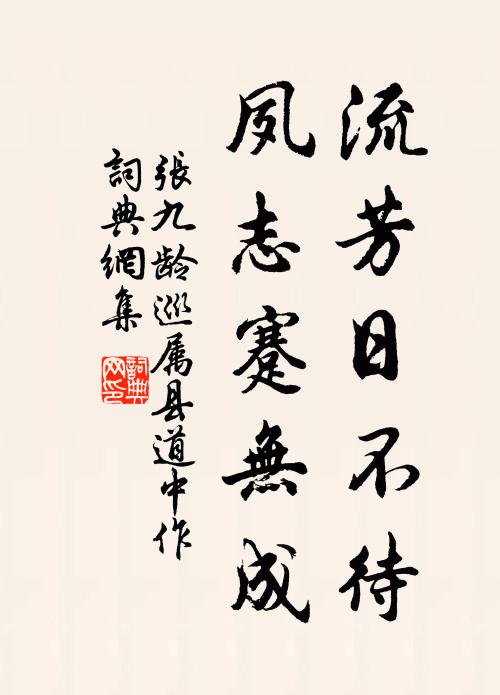 流芳日不待
夙志蹇無成
張九龄巡属县道中作
詞典網集
詞典網印